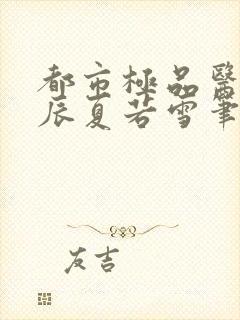 都市極品醫
辰夏若雪筆
友吉